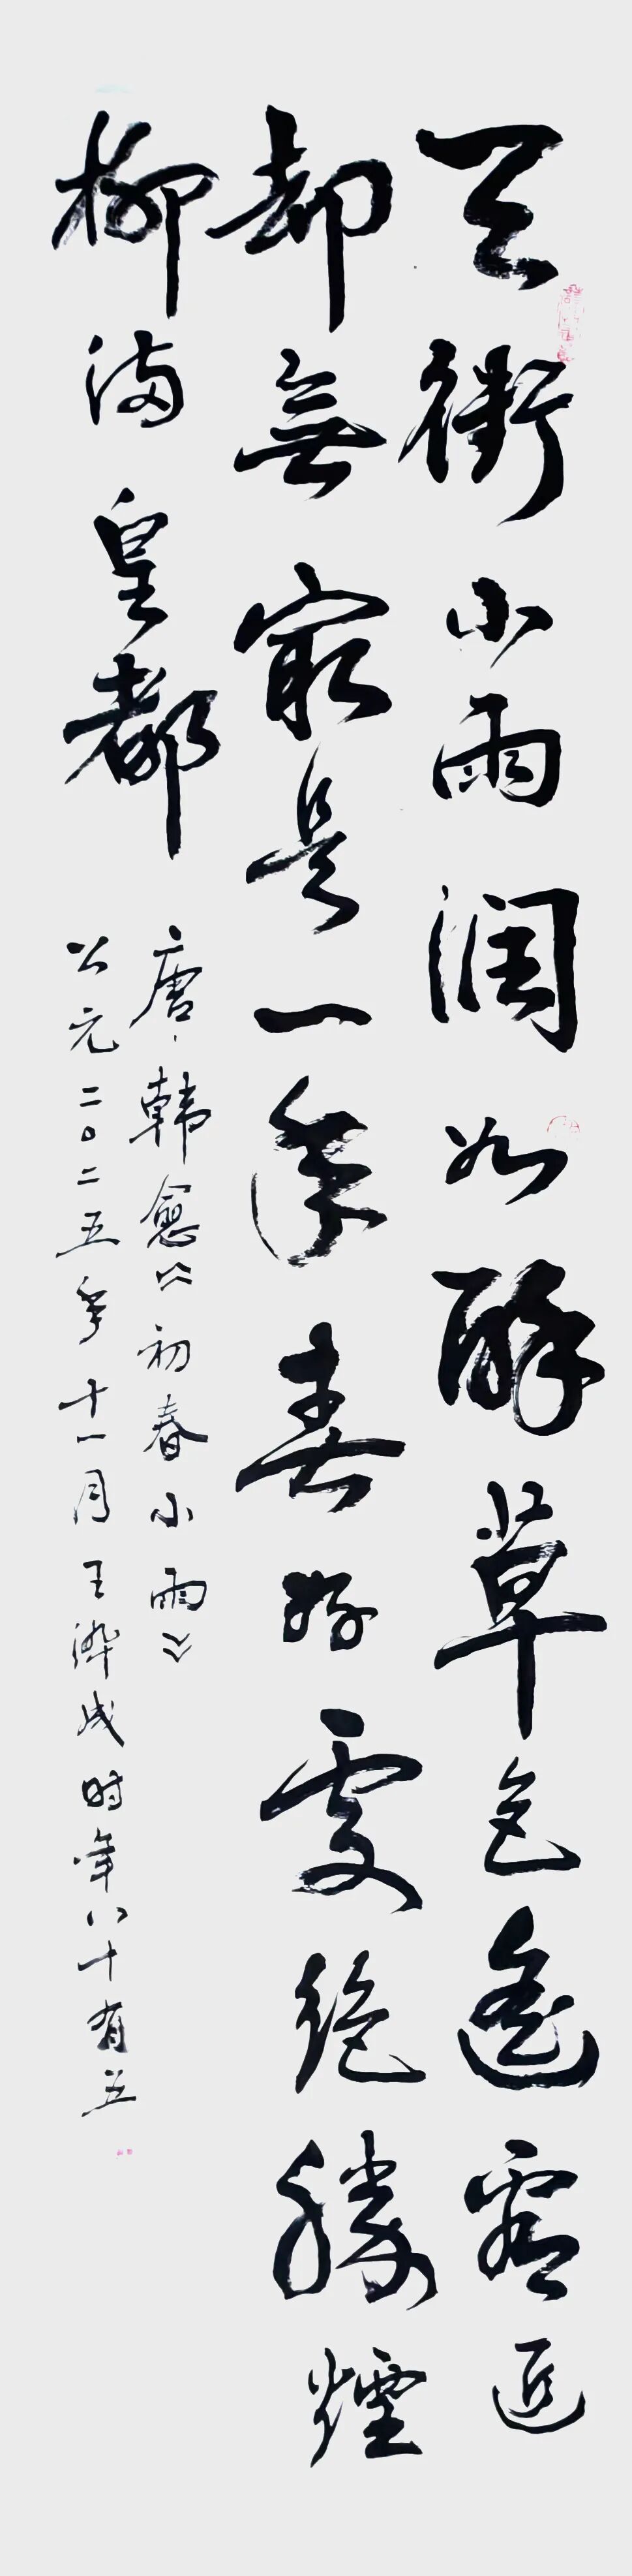 天街小雨润如酥草色遥看近
却無最是一年春好處絕勝煙
柳满皇都
唐、韩愈《初春小雨》
公元二〇二五年十一月王成时年八十有五